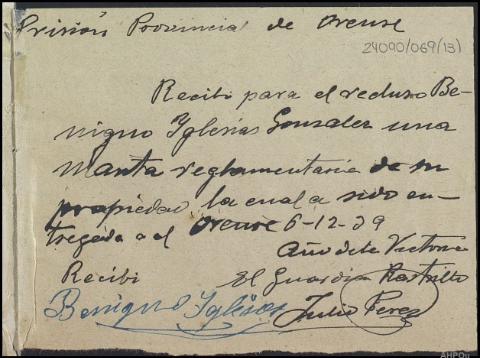 Prisión Provincial de Orense
24090/069(13)
Recibi para el recluso Be-
nigno Yglesias Gonzalez una
manta reglamentaria de su
propiedad la cual a sido en-
tregada a el Orense 6-12-39
Año de la Victoria
Recibi El Guardia Rastrillo
Benigno Yglesias Julio Perez
AHPOu